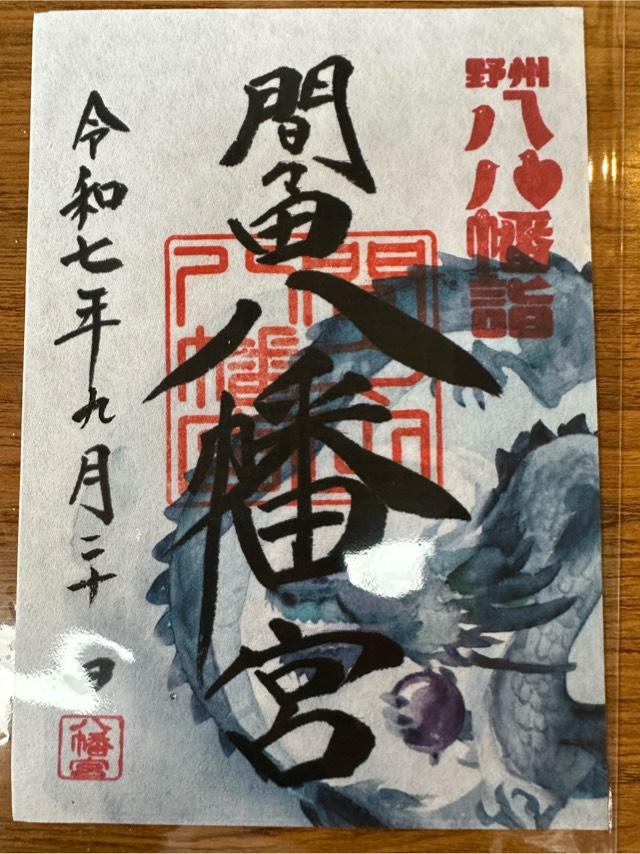 野州
八八幡詣
間々田八幡宮
令和七年九月二十日
八幡宮